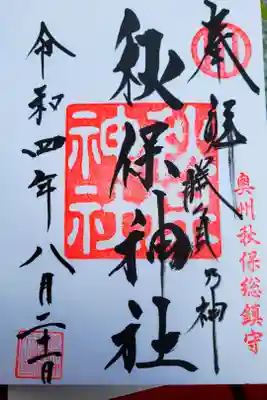 奉拝
勝負乃神
奥州秋保総鎮守
秋保神社
令和四年八月二十一日